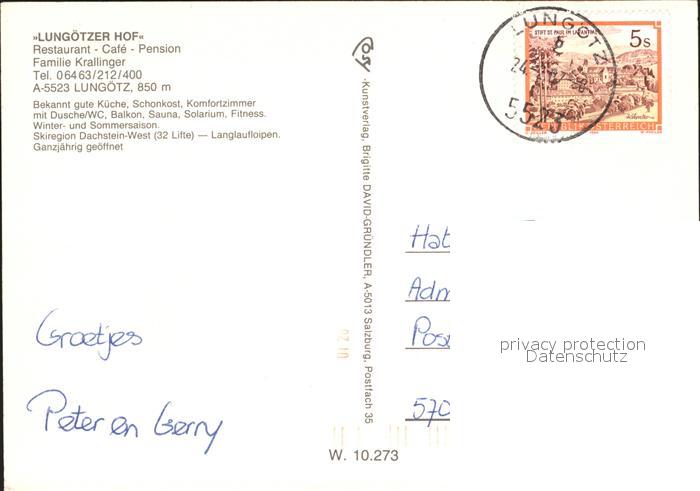 »LUNGÖTZER HOF«
Restaurant - Café - Pension
Familie Krallinger
Tel. 0 64 63 / 212 / 400
A-5523 LUNGÖTZ, 850 m
Bekannt gute Küche, Schonkost, Komfortzimmer
mit Dusche/WC, Balkon, Sauna, Solarium, Fitness.
Winter- und Sommersaison.
Skiregion Dachstein-West (32 Lifte) — Langlaufloipen.
Ganzjährig geöffnet
Groetjes
Peter en Gerry
-Kunstverlag, Brigitte DAVID-GRÜNDLER, A-5013 Salzburg, Postfach 35
W. 10.273
LUNGÖTZ
5523
STIFT ST. PAUL IM LAVANTTAL
5s
REPUBLIK ÖSTERREICH
Hat
Adm
Pos
570
privacy protection
Datenschutz